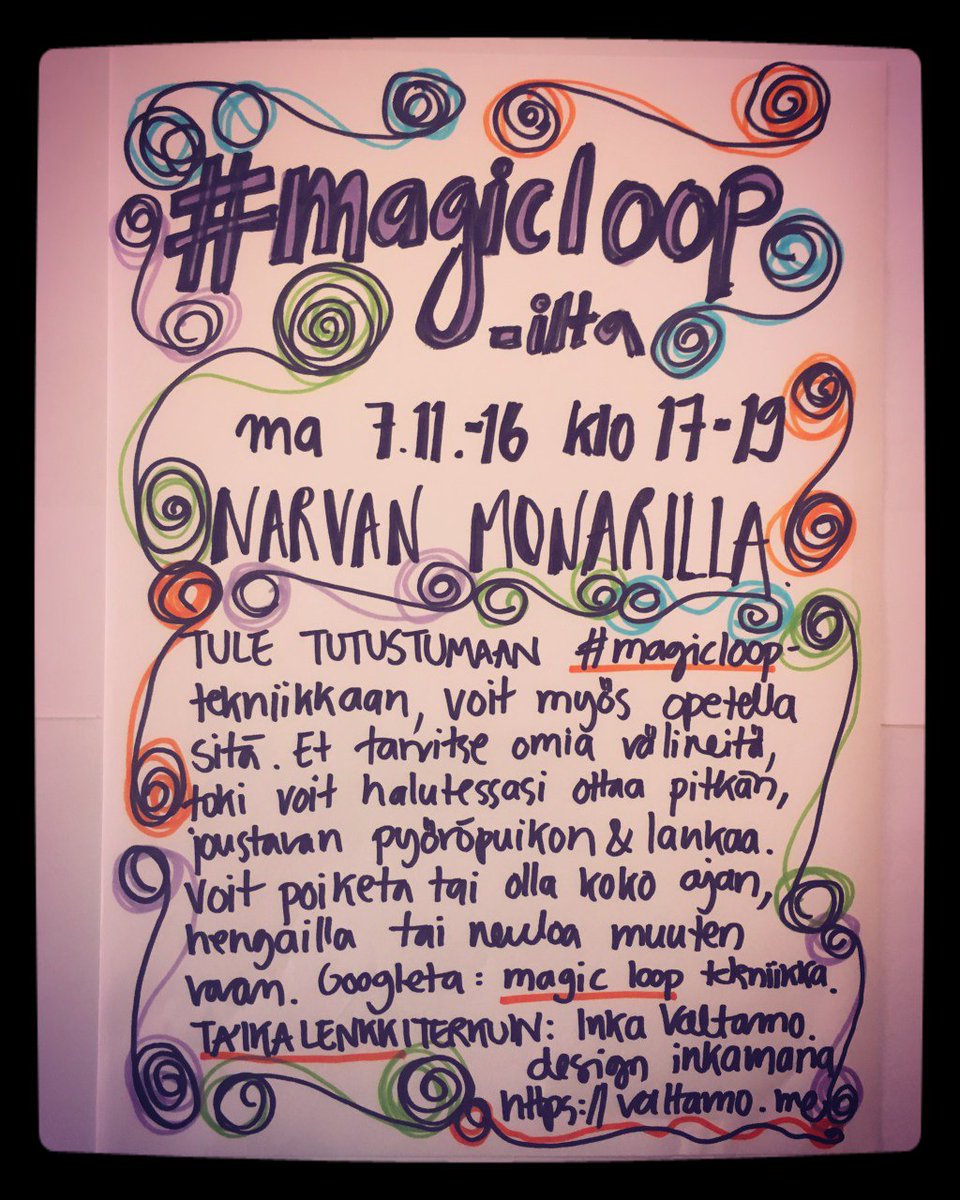 #magicloop
-ilta
ma 7.11.-16 klo 17-19
NARVAN MONARILLA.
TULE TUTUSTUMAAN #magicloop-
tekniikkaan, voit myös opetella
sitä. Et tarvitse omia välineitä,
toki voit halutessasi ottaa pitkän,
joustavan pyöröpuikon & lankaa.
Voit poiketa tai olla koko ajan,
hengailla tai neuloa muuten
vaan. Googleta: magic loop tekniikka.
TAIKALENKKITERKUIN: Inka Valtamo.
design inkamaria
https://valtamo.me